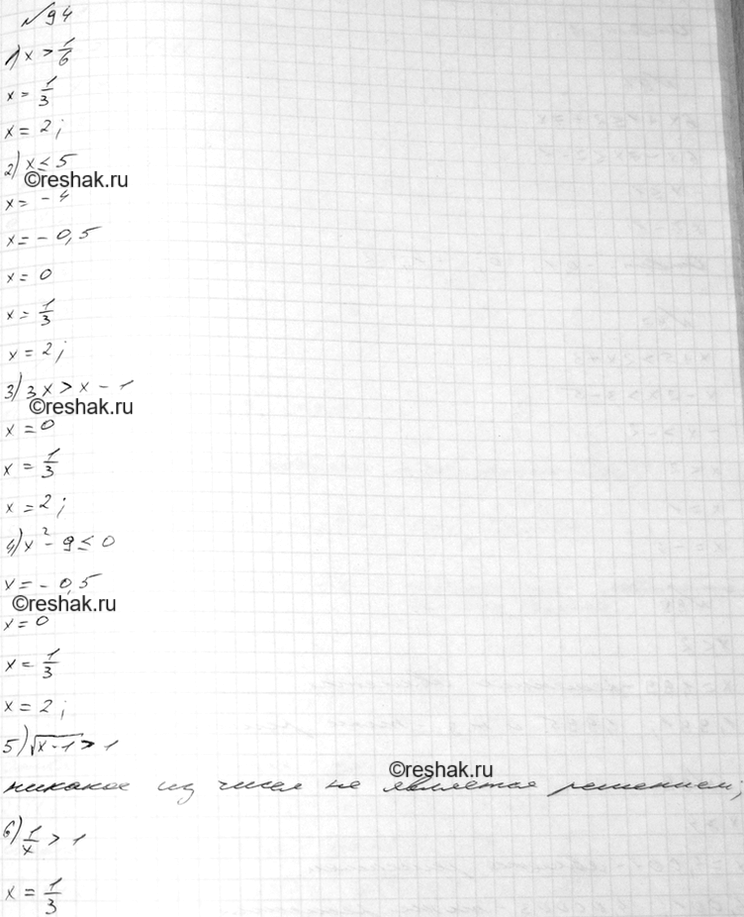 №94
1) x > 1/6
x = 1/3
x = 2;
2) x ≤ 5
©reshak.ru
x = - 4
x = - 0,5
x = 0
x = 1/3
x = 2;
3) 3x > x - 1
©reshak.ru
x = 0
x = 1/3
x = 2;
4) x² - 9 ≤ 0
x = - 0,5
©reshak.ru
x = 0
x = 1/3
x = 2;
5) √(x-1) > 1
©reshak.ru
никакое из чисел не является решением;
6) 1/x > 1
x = 1/3